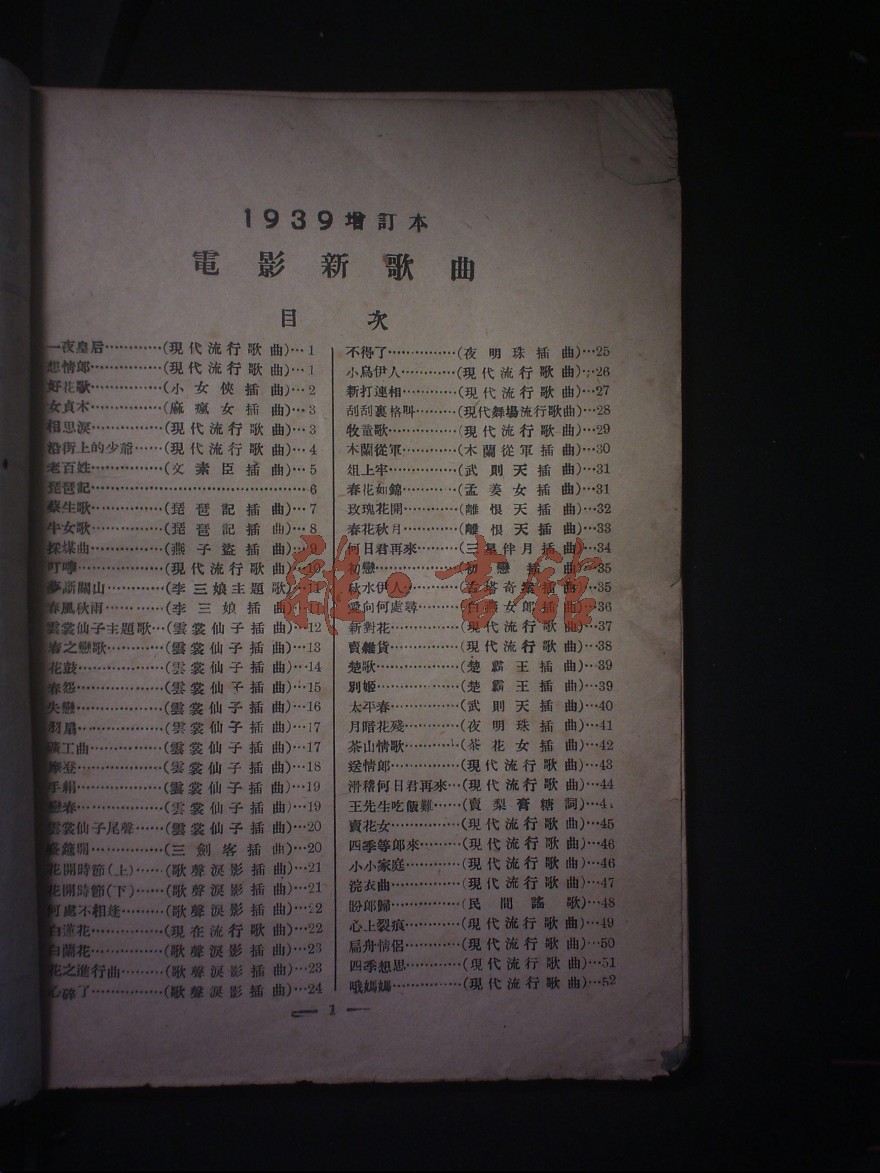 1939增訂本
電影新歌曲
目次
一夜皇后…………(現代流行歌曲)…1
想情郎……………(現代流行歌曲)…1
好花歌……………(小女俠插曲)…2
女貞木……………(麻瘋女插曲)…3
相思淚……………(現代流行歌曲)…3
沿街上的少爺……(現代流行歌曲)…4
老百姓……………(文素臣插曲)…5
琵琶記……………………………………6
蔡生歌……………(琵琶記插曲)…7
牛女歌……………(琵琶記插曲)…8
採煤曲……………(燕子盜插曲)…9
叮嚀………………(現代流行歌曲)…10
夢斷關山…………(李三娘主題歌)…11
春風秋雨…………(李三娘插曲)
雲裳仙子主題歌…(雲裳仙子插曲)…12
春之戀歌…………(雲裳仙子插曲)…13
花鼓………………(雲裳仙子插曲)…14
春怨………………(雲裳仙子插曲)…15
失戀………………(雲裳仙子插曲)…16
羽扇………………(雲裳仙子插曲)…17
礦工曲……………(雲裳仙子插曲)…17
摩登………………(雲裳仙子插曲)…18
手絹………………(雲裳仙子插曲)…19
戀春………………(雲裳仙子插曲)…19
雲裳仙子尾聲……(雲裳仙子插曲)…20
(三劍客插曲)…20
花開時節(上)……(歌聲淚影插曲)…21
花開時節(下)……(歌聲淚影插曲)…21
何處不相逢………(歌聲淚影插曲)…22
白蓮花……………(現在流行歌曲)…22
白蘭花……………(歌聲淚影插曲)…23
花之進行曲………(歌聲淚影插曲)…23
心碎了……………(歌聲淚影插曲)…24
不得了……………(夜明珠插曲)…25
小鳥伊人…………(現代流行歌曲)…26
新打連相…………(現代流行歌曲)…27
刮刮裏格叫………(現代舞場流行歌曲)…28
牧童歌……………(現代流行歌曲)…29
木蘭從軍…………(木蘭從軍插曲)…30
俎上牢……………(武則天插曲)…31
春花如錦…………(孟姜女插曲)…31
玫瑰花開…………(離恨天插曲)…32
春花秋月…………(離恨天插曲)…33
何日君再來………(三星伴月插曲)…34
初戀………………(初戀插曲)…35
秋水伊人…………(古塔奇案插曲)…35
愛向何處尋………(白燕女郎插曲)…36
新對花……………(現代流行歌曲)…37
賣雜貨……………(現代流行歌曲)…38
楚歌………………(楚霸王插曲)…39
別姬………………(楚霸王插曲)…39
太平春……………(武則天插曲)…40
月暗花殘…………(夜明珠插曲)…41
茶山情歌…………(茶花女插曲)…42
送情郎……………(現代流行歌曲)…43
滑稽何日君再來…(現代流行歌曲)…44
王先生吃飯難……(賣梨膏糖詞)…4
賣花女……………(現代流行歌曲)…45
四季等郎來………(現代流行歌曲)…46
小小家庭…………(現代流行歌曲)…46
浣衣曲……………(現代流行歌曲)…47
盼郎歸……………(民間謠歌)…48
心上裂痕…………(現代流行歌曲)…49
扁舟情侶…………(現代流行歌曲)…50
四季想思…………(現代流行歌曲)…51
哦媽媽……………(現代流行歌曲)…52
— 1 —
雜·書館